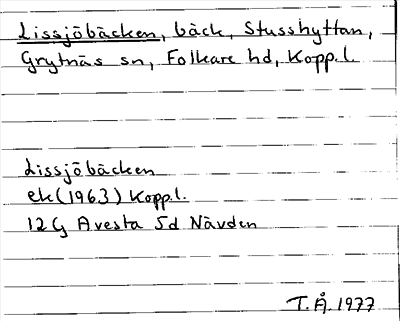 Lissjöbäcken, bäck, Stusshyttan,
Grytnäs sn, Folkare hd, Kopp.l.
Lissjöbäcken
ek (1963) Kopp.l.
12 G Avesta 5d Nävden
T.Å. 1977